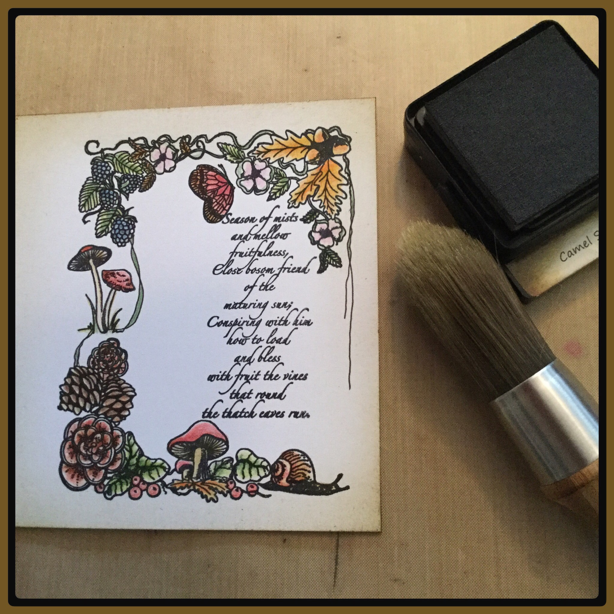 Season of mists
and mellow
fruitfulness,
Close bosom friend
of the
maturing sun;
Conspiring with him
how to load
and bless
with fruit the vines
that round
the thatch eaves run.
Camel